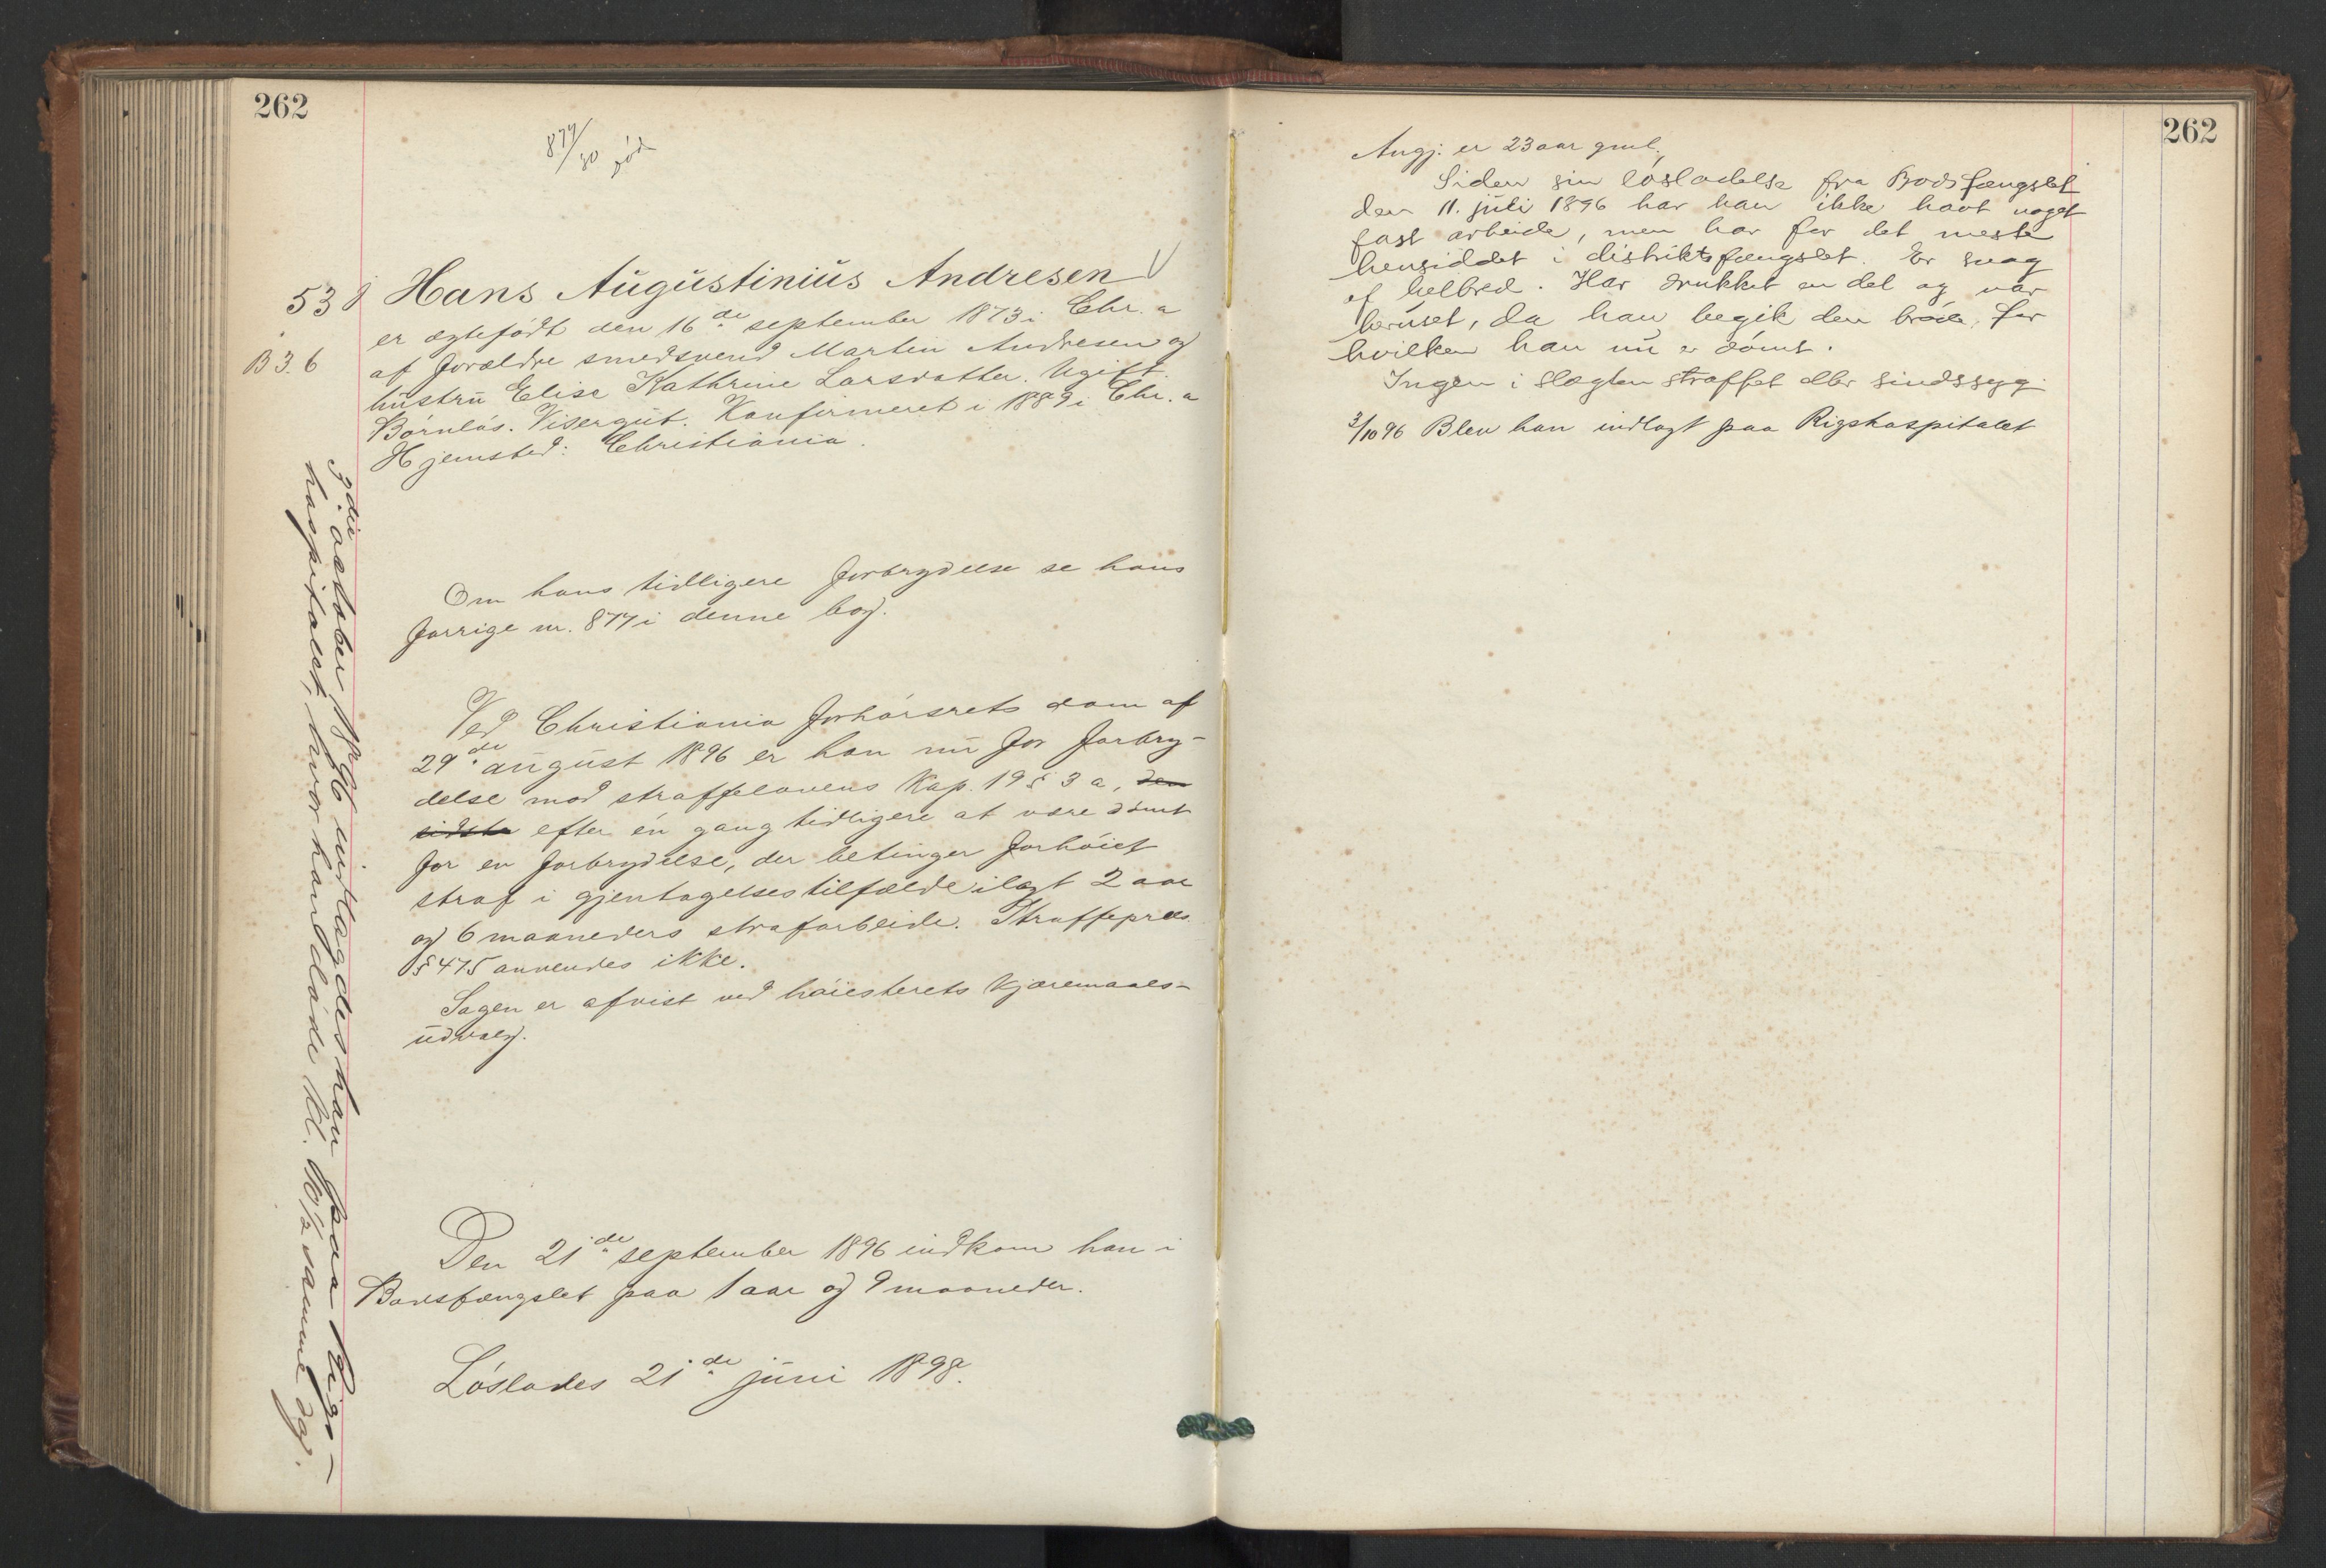 262
877/90 død
53
Hans Augustinius Andresen
B 3. 6
er ægtefødt den 16de september 1873 i Chr.a
af forældre smedsvend Martin Andresen og
hustru Elise Kathrine Larsdatter. Ugift.
Børnløs. Visergut. Konfirmeret i 1889 i Chr.a
Hjemsted: Christiania.
Om hans tidligere forbrydelse se hans
forrige nr. 877 i denne bog.
Ved Christiania forhørsrets dom af
29de august 1896 er han nu for forbry-
delse mod straffelovens Kap. 19 § 3 a, den
sidste efter én gang tidligere at være dømt
for en forbrydelse, der betinger forhøiet
straf i gjentagelsestilfælde ilagt 2 aar
og 6 maaneders strafarbeide. Straffepr.l.s
§ 475 anvendes ikke.
Sagen er afvist ved høiesterets kjæremaals-
udvalg.
Den 21de september 1896 indkom han i
Bodsfængslet paa 1 aar og 9 maaneder.
Løslades 21de juni 1898.
3die october 1896 indlagdes han paa Rigs-
hospitalet, hvor han døde kl. 10 1/2 samme dag.
262
Angj. er 23 aar gml.
Siden sin løsladelse fra Bodsfængslet
den 11. juli 1896 har han ikke havt noget
fast arbeide, men har for det meste
hensiddet i distriktsfængslet. Er svag
af helbred. Har drukket en del og var
beruset, da han begik den brøde, for
hvilken han nu er dømt.
Ingen i slægten straffet eller sindssyg.
3/10 96 Blev han indlagt paa Rigshospitalet